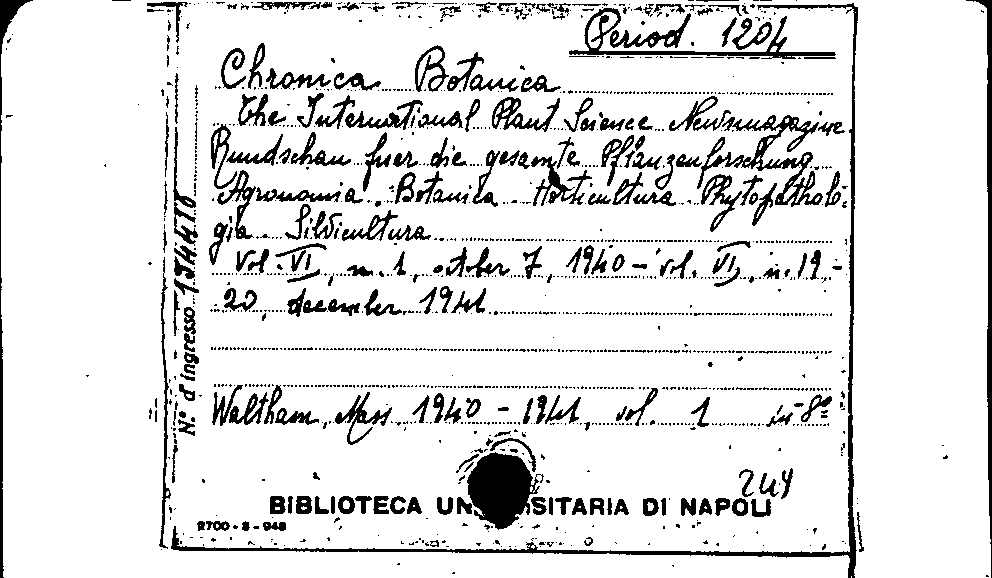 Period. 1204
Chronica Botanica
The International Plant Science Newsmagazine.
Rundschau fuer die gesamte Pflanzenforschung
Agronomia. Botanica. Horticultura. Phytopatholo-
gia. Silvicultura
Vol. VI, n. 1, october 7, 1940 - vol. VI, n. 19-
20, december 1941.
Waltham, Mass 1940 - 1941, vol. 1 in-8°
244
BIBLIOTECA UN SITARIA DI NAPOLI
2700-8-948
N.° d'ingresso